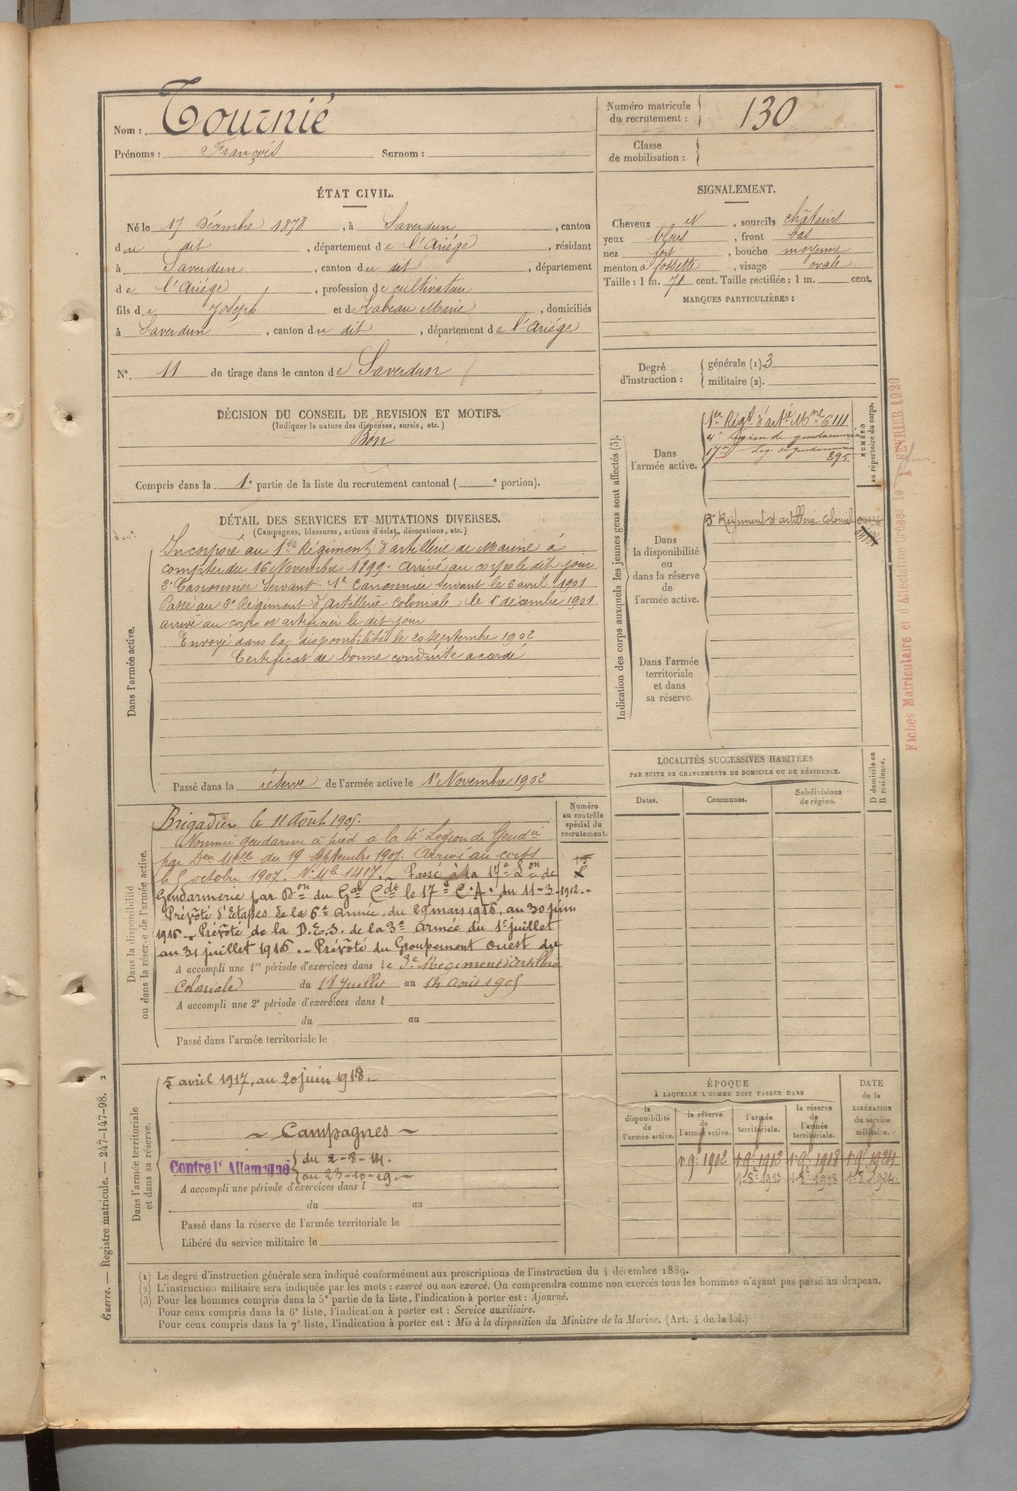 Nom : Tournié
Prénoms : François Surnom :
Numéro matricule du recrutement : 130
Classe de mobilisation :
ÉTAT CIVIL.
Né le 17 Décembre 1878, à Saverdun, canton
du dit, département de l'Ariége, résidant
à Saverdun, canton du dit, département
de l'Ariége, profession de cultivateur
fils de Joseph et de Labeau Marie, domiciliés
à Saverdun, canton du dit, département de l'Ariége
N° 11 de tirage dans le canton de Saverdun
DÉCISION DU CONSEIL DE REVISION ET MOTIFS.
(Indiquer la nature des dispenses, sursis, etc.)
Bon
Compris dans la 1e partie de la liste du recrutement cantonal ( e portion).
SIGNALEMENT.
Cheveux N, sourcils châtains
yeux bleus, front bas
nez fort, bouche moyenne
menton à fossette, visage ovale
Taille : 1 m. 71 cent. Taille rectifiée : 1 m. cent.
MARQUES PARTICULIÈRES :
Degré d'instruction : générale (1). 3
militaire (2).
DÉTAIL DES SERVICES ET MUTATIONS DIVERSES.
(Campagnes, blessures, actions d'éclat, décorations, etc.)
Dans l'armée active.
Incorporé au 1er Régiment d'artillerie de Marine à
compter du 16 Novembre 1899. Arrivé au corps le dit jour
2e Canonnier Servant 1er Canonnier servant le 6 avril 1901
Passé au 3e Régiment d'Artillerie coloniale le 1er décembre 1901
arrivé au corps et artificier le dit jour
Envoyé dans la disponibilité le 20 septembre 1902
Certificat de bonne conduite accordé
Passé dans la réserve de l'armée active le 1er Novembre 1902
Indication des corps auxquels les jeunes gens sont affectés (3).
NUMÉRO au répertoire du corps.
Dans l'armée active.
1er Régt d'artie Mne 6111
4e Légion de gendarmerie
17e Lég. de gendarmerie
895
Dans la disponibilité ou dans la réserve de l'armée active.
3e Régiment d'artillerie Colonial
Dans l'armée territoriale et dans sa réserve.
LOCALITÉS SUCCESSIVES HABITÉES
PAR SUITE DE CHANGEMENTS DE DOMICILE OU DE RÉSIDENCE.
Dates. Communes. Subdivisions de région. D domicile ou R résidence.
Numéro au contrôle spécial du recrutement.
Dans la disponibilité ou dans la réserve de l'armée active.
Brigadier le 11 Août 1905.
Nommé gendarme à pied à la 4e Légion de Gendie
par Don Mlle du 19 Septembre 1907. Arrivé au corps
le 5 octobre 1907. N° Mle 1417. Passé à la 17e Lon de
Gendarmerie par Don du Gal Cdt le 17e C.A. du 11-3-1912.-
Prévôté d'Etapes de la 6e Armée, du 29 mars 1916, au 30 juin
1916.- Prévôté de la D.E.S. de la 3e Armée du 1er juillet
au 31 juillet 1916.- Prévôté du Groupement Ouest du
A accompli une 1re période d'exercices dans le 3e Régiment d'artillerie
Coloniale du 18 Juillet au 14 Août 1905
A accompli une 2e période d'exercices dans l
du au
Passé dans l'armée territoriale le
Dans l'armée territoriale et dans sa réserve.
5 avril 1917, au 20 juin 1918.-
~ Campagnes ~
Contre l'Allemagne du 2-8-14.
au 23-10-19.-
A accompli une période d'exercices dans l
du au
Passé dans la réserve de l'armée territoriale le
Libéré du service militaire le
ÉPOQUE
À LAQUELLE L'HOMME DOIT PASSER DANS
la disponibilité de l'armée active. la réserve de l'armée active. l'armée territoriale. la réserve de l'armée territoriale.
DATE de la LIBÉRATION du service militaire.
1er 9e 1902 1er 9e 1912 1er 9e 1918 1er 9e 1924
(1) Le degré d'instruction générale sera indiqué conformément aux prescriptions de l'instruction du 4 décembre 1889.
(2) L'instruction militaire sera indiquée par les mots : exercé ou non exercé. On comprendra comme non exercés tous les hommes n'ayant pas passé au drapeau.
(3) Pour les hommes compris dans la 5e partie de la liste, l'indication à porter est : Ajourné.
Pour ceux compris dans la 6e liste, l'indication à porter est : Service auxiliaire.
Pour ceux compris dans la 7e liste, l'indication à porter est : Mis à la disposition du Ministre de la Marine. (Art. 4 de la loi.)
Guerre. — Registre matricule. — 247-147-98. 2
Fiches Matriculaire et d'Affectation Créées le 1 FEVRIER 1929